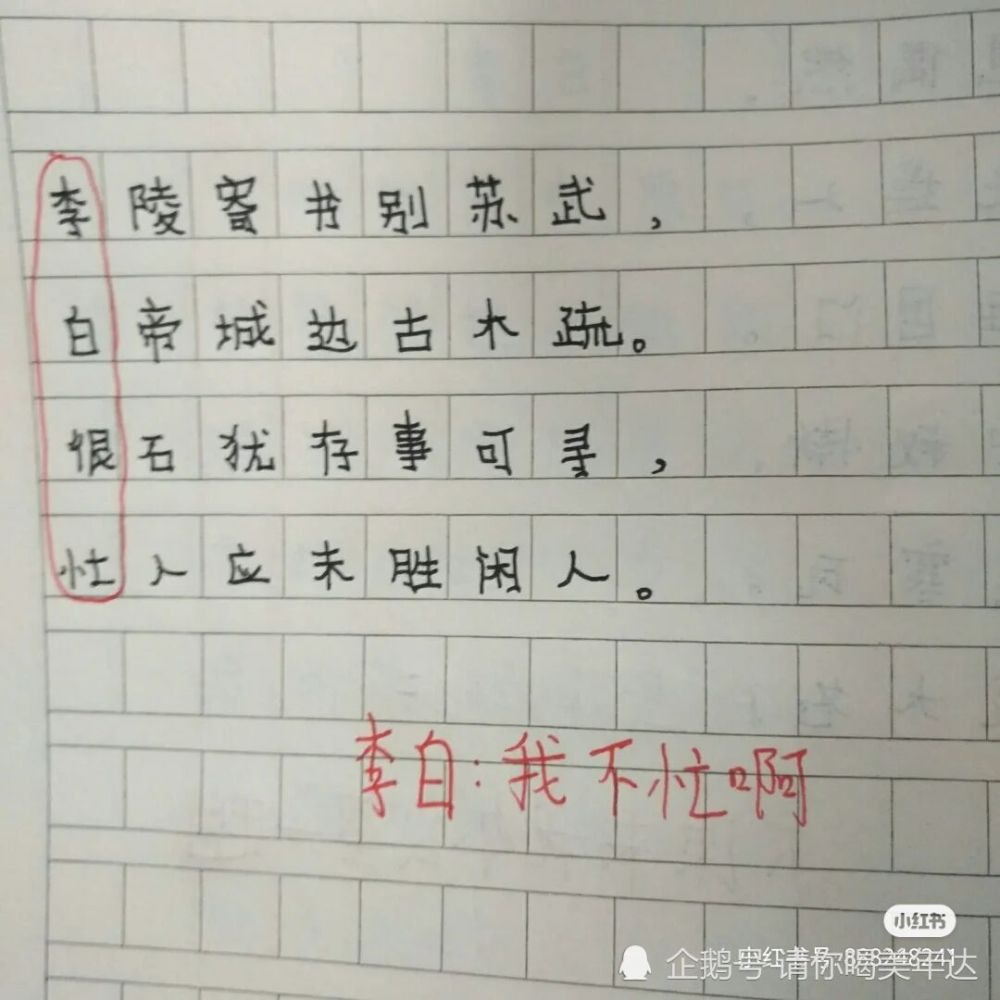 李陵寄书别苏武，
白帝城边古木疏。
很石犹存事可寻，
忙人应未胜闲人。
李白：我不忙啊
小红书
企鹅号 请你喝美年达